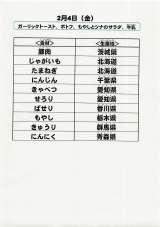 2月4日（金）
ガーリックトースト、ポトフ、もやしとツナのサラダ、牛乳
＜食材＞ ＜生産地＞
豚肉 茨城県
じゃがいも 北海道
たまねぎ 北海道
にんじん 千葉県
きゃべつ 愛知県
せろり 愛知県
ぱせり 香川県
もやし 栃木県
きゅうり 群馬県
にんにく 青森県